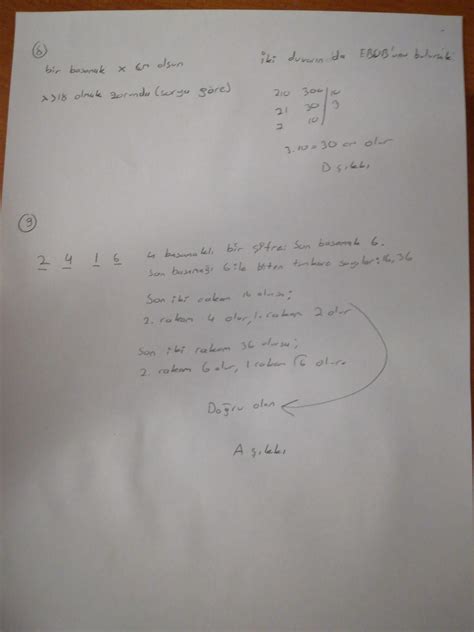 8
bir basamak x cm olsun
x>18 olmak zorunda (soruya göre)
iki durumunda EBOB'unu bulursak
210 300 | 10
21 30 | 3
7 10
3.10=30 cm olur
D şıkkı
9
2 4 1 6
4 basamaklı bir şifre; son basamak 6.
son basamağı 6 ile biten tamkare sayılar: 16, 36
Son iki rakam 16 olursa;
2. rakam 4 olur, 1. rakam 2 olur
Son iki rakam 36 olursa;
2. rakam 6 olur, 1 rakam √6 olur.
Doğru olan
A şıkkı